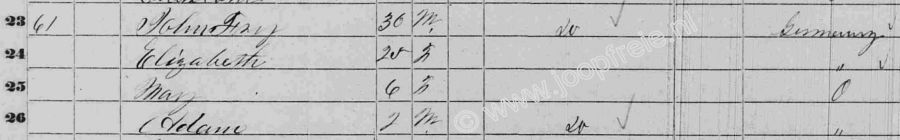 23 61 John Fray 30 M. do Germany
24 Elizabeth 20 F "
25 May 6 F O
26 Adam 2 M. do "
© www.joopfreie.nl